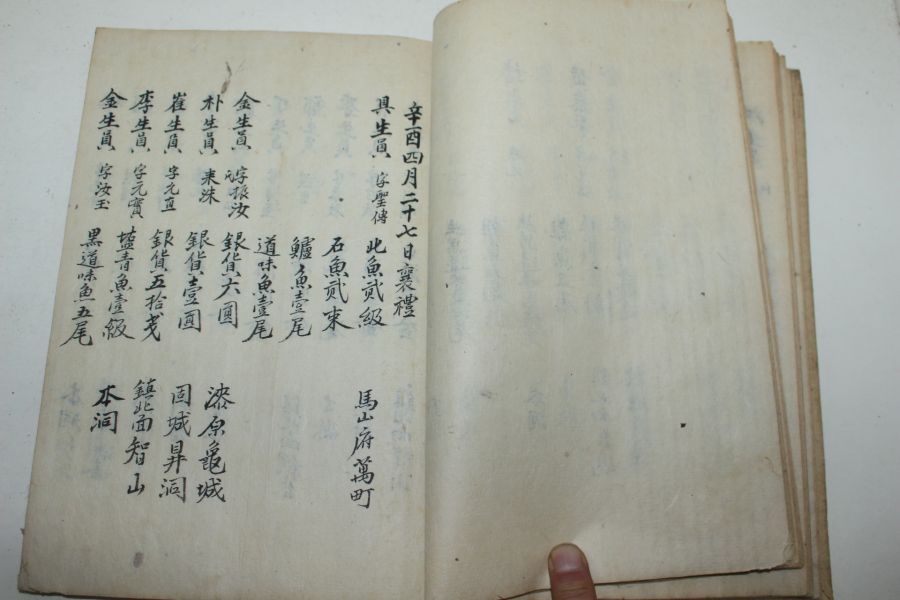 辛酉四月二十七日襄禮
具生員 字聖傳 此魚貳級 馬山府萬町
石魚貳束
鱸魚壹尾
道味魚壹尾
金生員 字振汝 銀貨六圓 漆原龜城
朴生員 来洙 銀貨壹圓 固城昇洞
崔生員 字元直 銀貨五拾戔 鎮北面智山
李生員 字元寶 塩青魚壹級
金生員 字汝玉 黒道味魚五尾 本洞